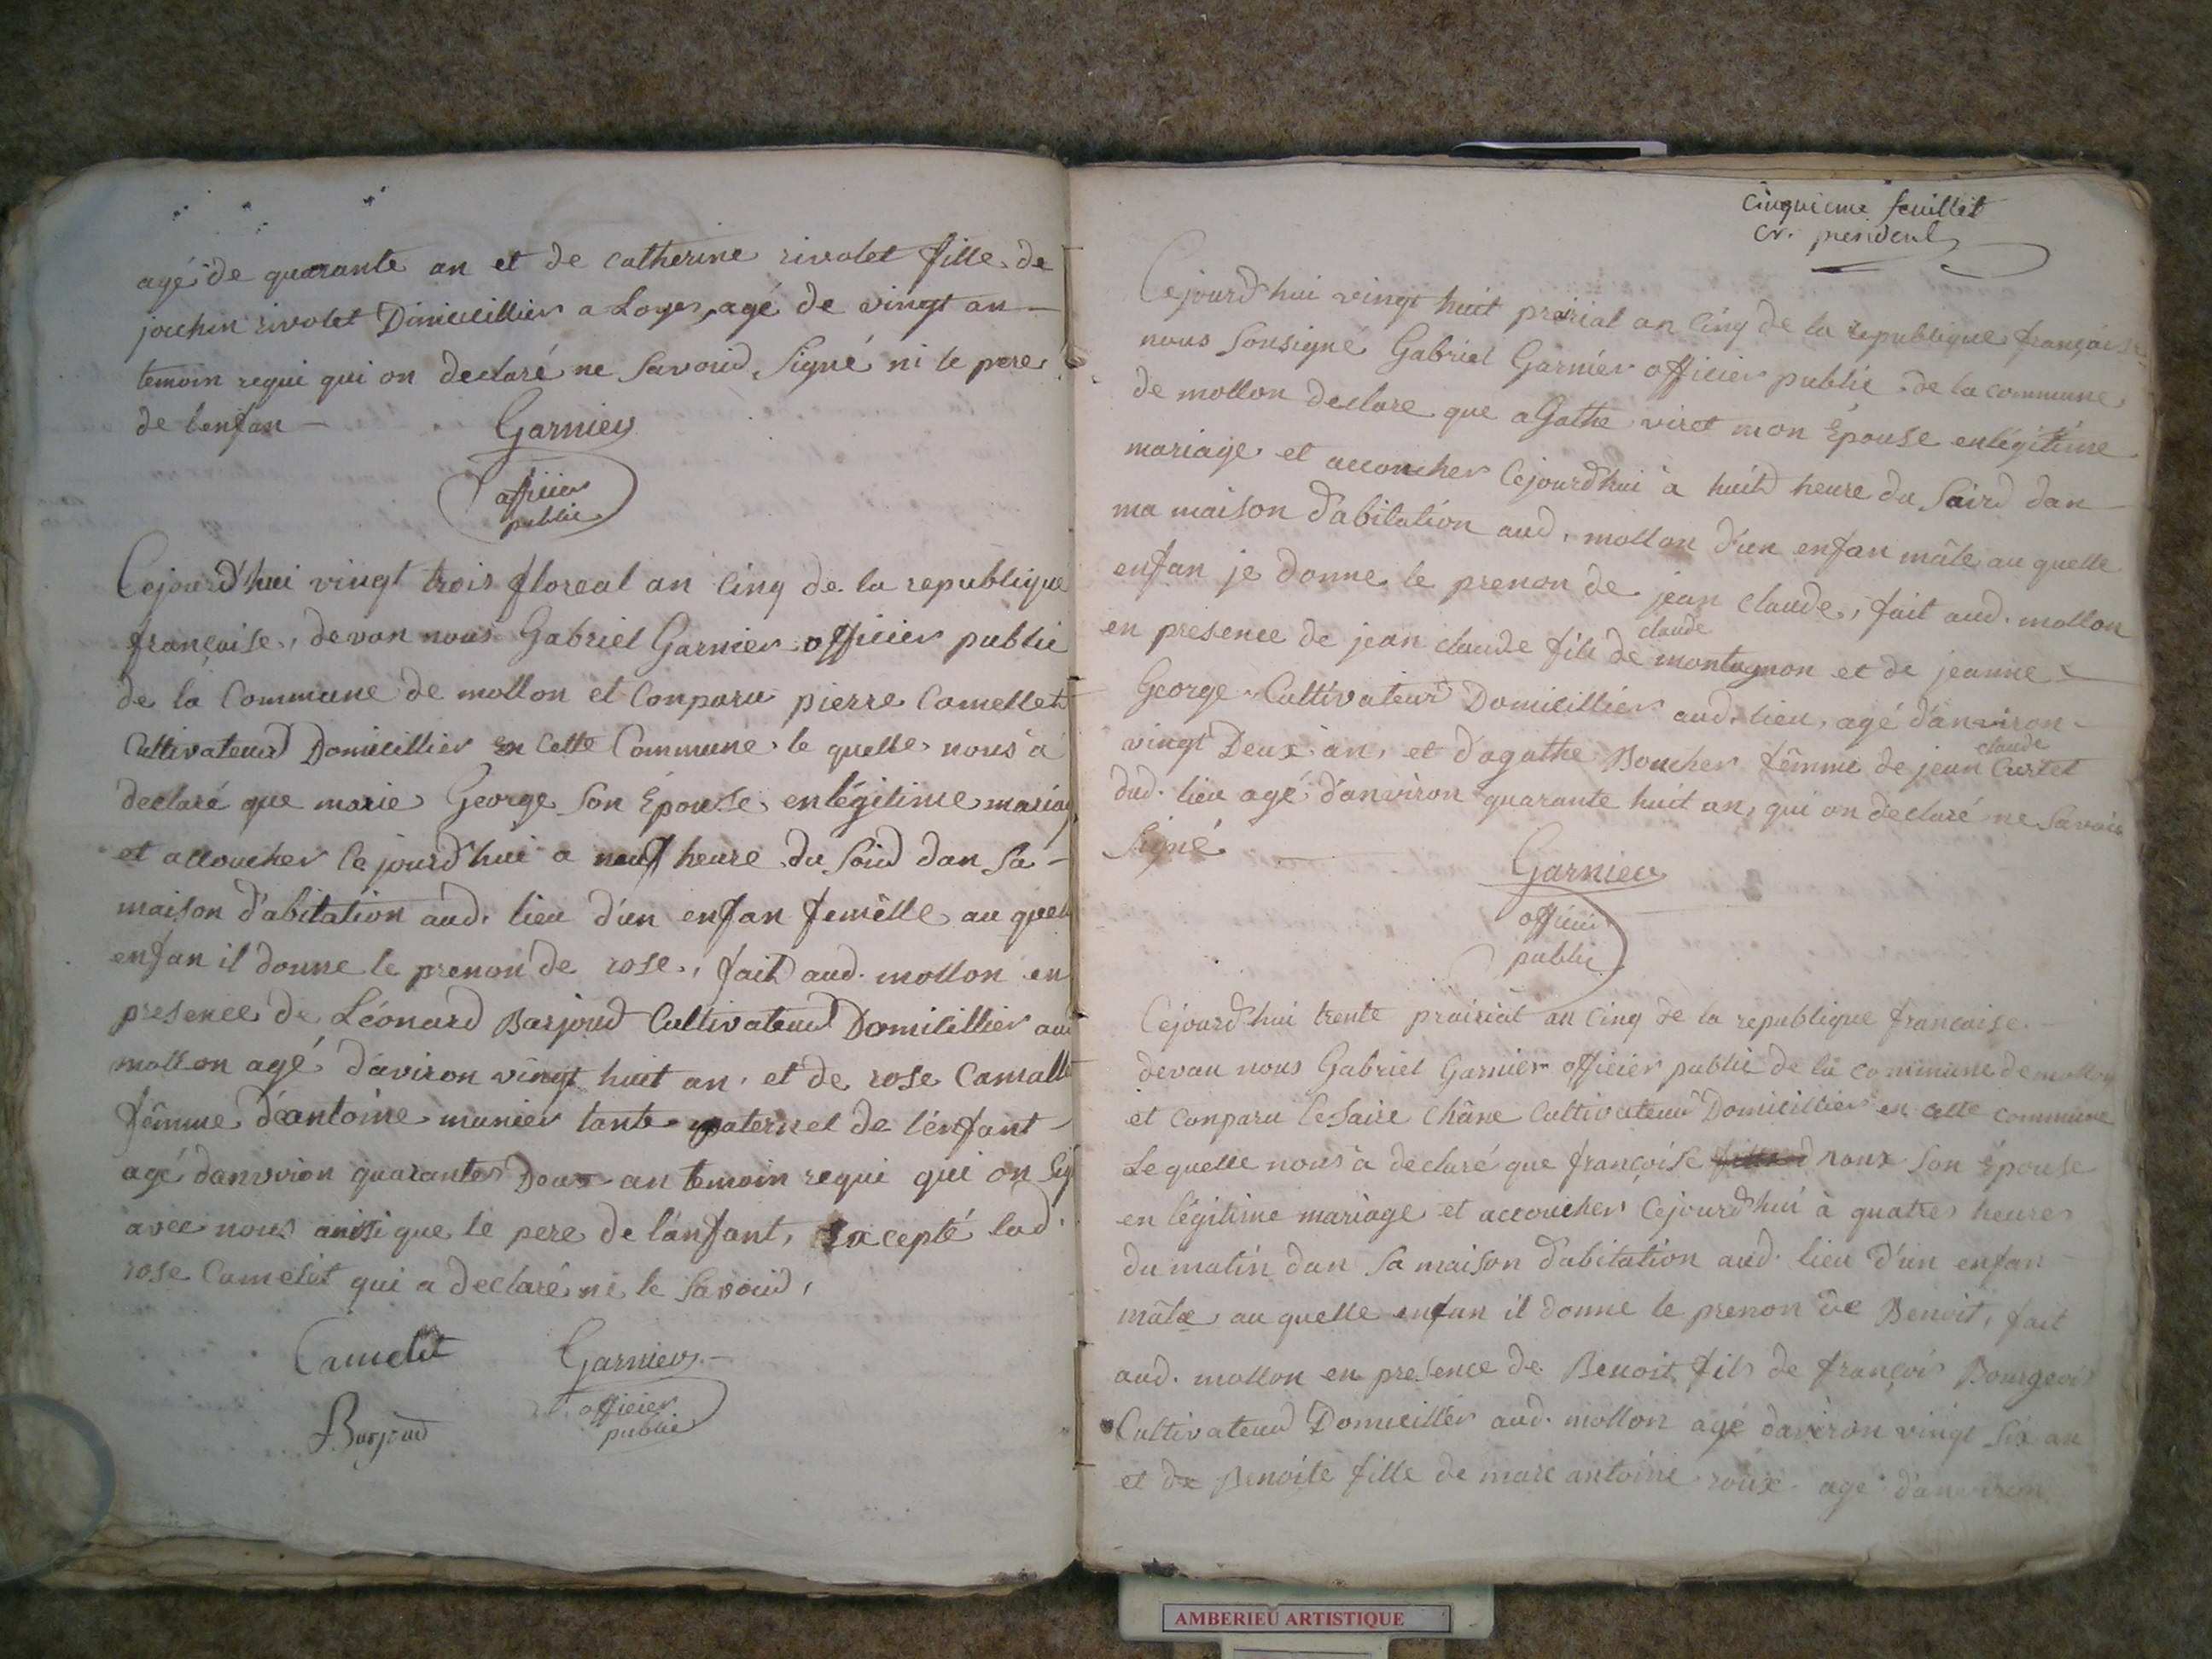 agé de quarante an et de catherine rivolet fille de
jochin rivolet Dimicillier a Loyes, agé de vingt an
temoin requi qui on declaré ne Savoird Signé ni le pere
de lenfan
Garnier
officier
public
Cejourd'hui vingt trois floreal an Cinq de la republique
françaises, devan nous Gabriel Garnier officier public
de la Commune de mollon et Conparu pierre Camellet
Cultivateurd Domicillier en Cette Commune le quelle nous a
declaré que marie George Son Épouse enlégitime mariag
et accoucher Cejourd'hui a neuf heure du Soird dan Sa
maison d'abitation aud. lieu d'un enfan femêlle au quell
enfan il donne le prenon de rose, fait aud. mollon en
presence de Léonard Barjoud Cultivateurd Domicillier aud
mollon agé d'aviron vingt huit an, et de rose Camalle
fêmme d'antoine munier tante paternel de l'énfant
agé danviron quarantes Deux an temoin requi qui on Sig
avec nous ainsi que le pere de l'anfant, Excepté lad.
rose Camelet qui a declaré ne le Savoird,
Camelet
Garnier
officier
public
Barjoud
Cinquieme feuillet
Cr. president
Cejourd'hui vingt huit prairial an Cinq de la republique française
nous Sousigné Gabriel Garnier officier public de la commune
de mollon declare que aGathe viret mon Épouse enlégitime
mariage et accoucher Cejourd'hui à huitd heure du Soird dan
ma maison d'abitation aud. mollon d'un enfan mâle au quelle
enfan je donne le prenon de jean Claude, fait aud. mollon
en presence de jean claude fils de claude montagnon et de jeanne
George Cultivateurd Domicillier aud. lieu, agé d'anviron
vingt Deux an, et d'agathe Boucher fêmme de jean claude Curtet
dud. lieu agé d'anviron quarante huit an, qui on declaré ne Savoir
Signé
Garnier
officier
public
Cejourd'hui trente prairial an Cinq de la republique francaise
devan nous Gabriel Garnier officier public de la commune de mollon
et Conparu Cesaire Châne Cultivateur Domicillier en Cette Commune
Le quelle nous à declaré que françoise roux Son Épouse
en légitime mariage et accoucher Cejourd'hui à quatre heures
du matin dan Sa maison d'abitation aud. lieu d'un enfan
mâle au quelle enfan il donne le prenon de Benoit, fait
aud. mollon en presence de Benoit fils de françois Bourgeois
Cultivateurd Domicillier aud. mollon agé daviron vingt Six an
et de Benoite fille de marc antoine roux agé d'anviron